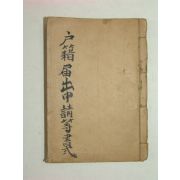 戸籍届出申請等書式